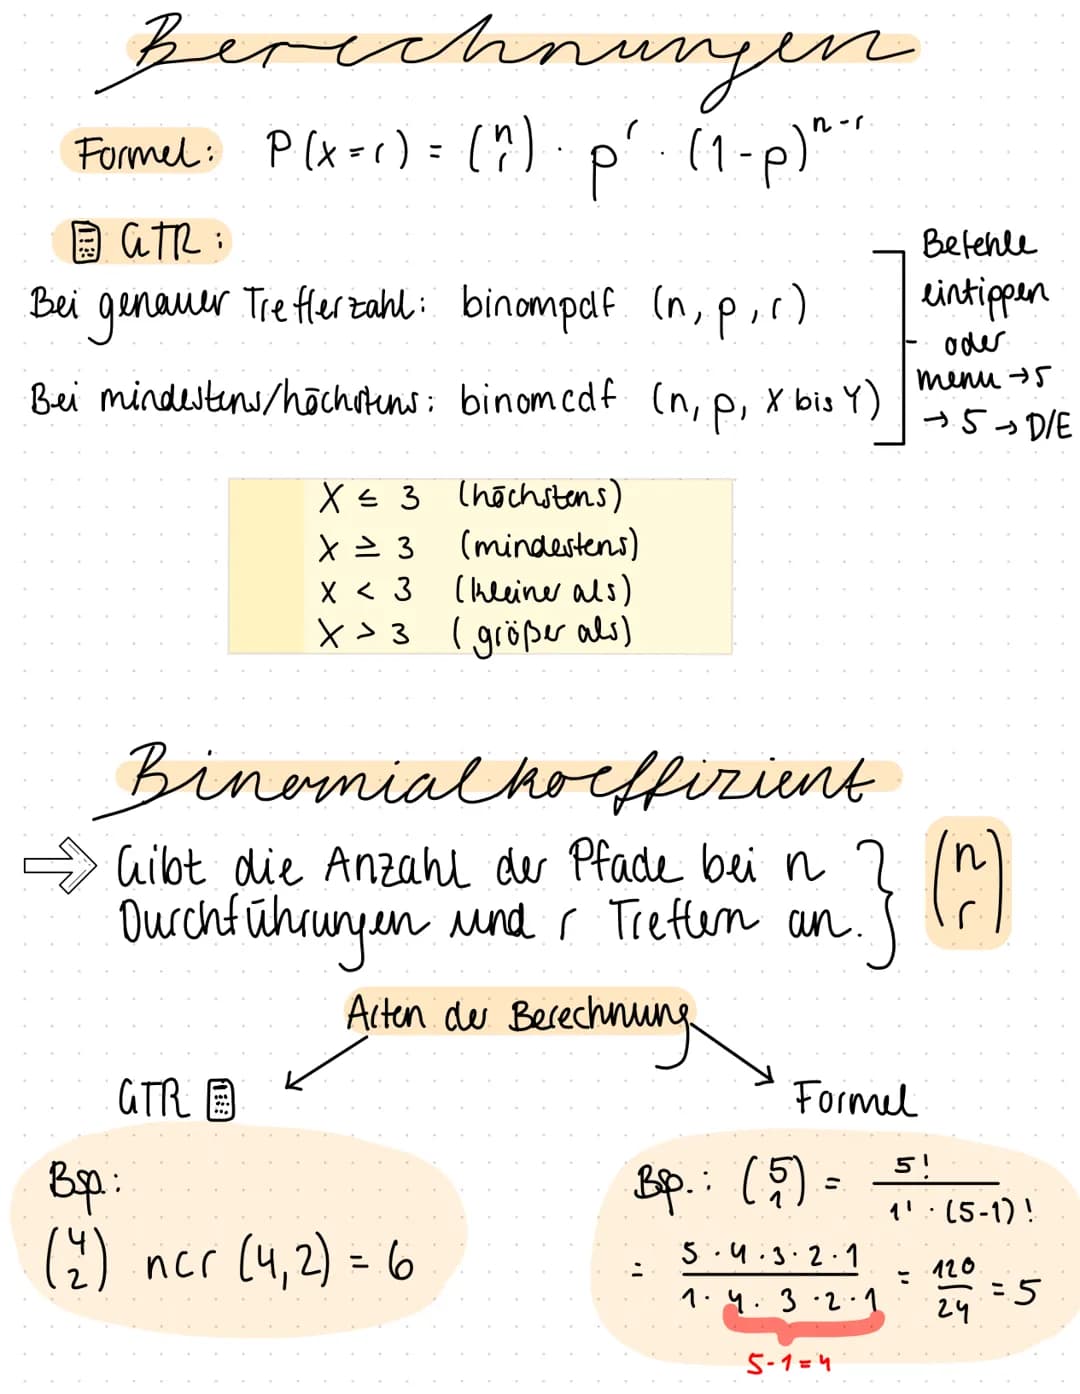 Berechnungen
Formel: P(x=r) = (n r) · p^r · (1-p)^n-r
GTR:
Bei genauer Trefferzahl: binompdf (n, p, r)
Bei mindestens/höchstens: binomcdf (n, p, X bis Y)
Befehle
eintippen
oder
menu → 5
→ 5 → D/E
X ≤ 3 (höchstens)
X ≥ 3 (mindestens)
X < 3 (kleiner als)
X > 3 (größer als)
Binomialkoeffizient
⇒ Gibt die Anzahl der Pfade bei n
Durchführungen und r Treffern an. } (n r)
Arten der Berechnung
GTR
Bsp.:
(4 2) ncr (4,2) = 6
Formel
Bsp.: (5 1) = 5! / 1! · (5-1)!
= 5·4·3·2·1 / 1·4·3·2·1 = 120 / 24 = 5
5-1=4